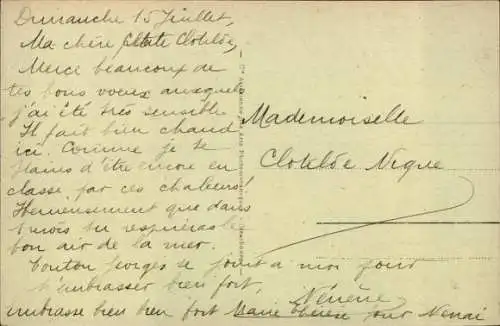 Dimanche 15 Juillet,
Ma chère Clotilde,
Merci beaucoup de
tes bons voeux auxquels
j'ai été très sensible
Il fait bien chaud
ici. Comme je te
plains d'être encore en
classe par ces chaleurs!
Heureusement que dans
1 mois tu respireras le
bon air de la mer.
Tonton Georges se joint à moi pour
t'embrasser bien fort,
Nénène
embrasse bien bien fort Marie Thérèse pour Nenai
Mademoiselle
Clotilde Nigue